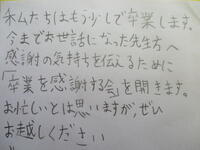 私たちはもう少しで卒業します。
今までお世話になった先生方へ
感謝の気持ちを伝えるために
「卒業を感謝する会」を開きます。
お忙しいとは思いますが、ぜひ
お越しください